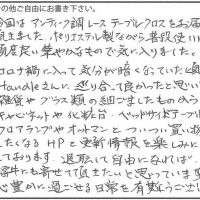 の他ご自由にお書き下さい。
今回はアンティーク調レーステーブルクロスをお届
頂きました。ポリエステル製ながら普段使いに
適度良い華やかなもので気に入りました。
コロナ禍に入って気分が暗くなっていた頃
Handleさんに巡り合って良かったと思い
雑貨やグラス類の細ごましたものから
キャビネットや化粧台・ベッドサイドテーブル
フロアランプやオットマンとついつい買い
たくなるHPと更新情報を楽しみに
しております。退職して自由になれば、
店にも寄せて頂きたいと思っています
心豊かに過ごせる日常を有難うござい